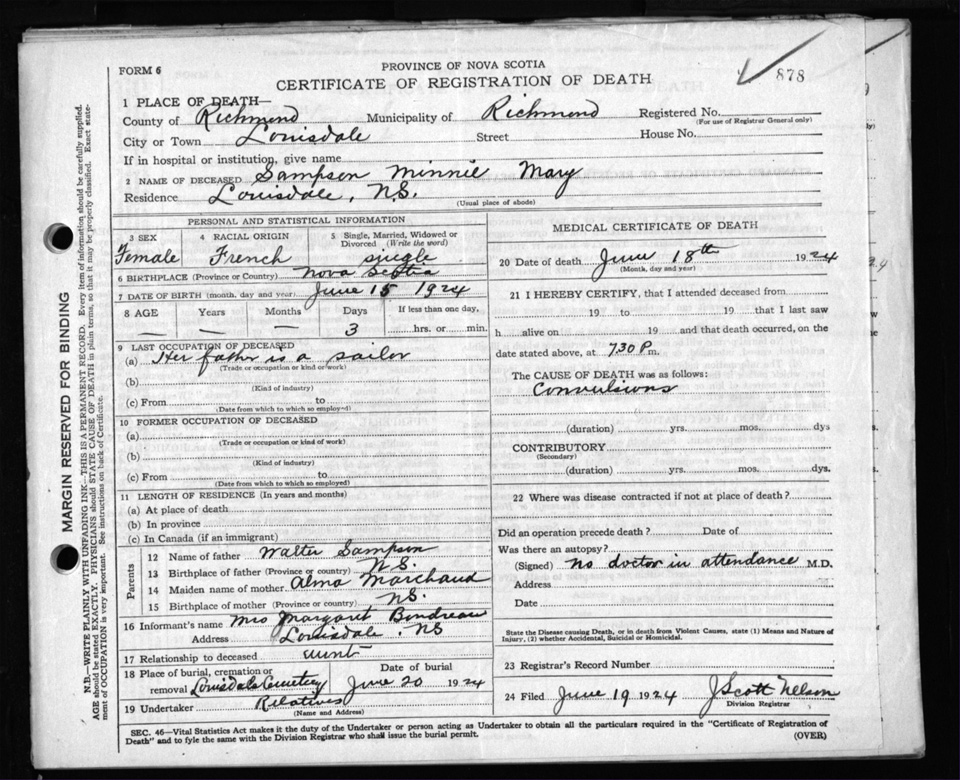 FORM 6
PROVINCE OF NOVA SCOTIA
CERTIFICATE OF REGISTRATION OF DEATH
878
1 PLACE OF DEATH—
County of Richmond Municipality of Richmond Registered No.
(For use of Registrar General only)
City or Town Louisdale Street House No.
If in hospital or institution, give name
2 NAME OF DECEASED Sampson Minnie Mary
Residence Louisdale, N.S.
(Usual place of abode)
PERSONAL AND STATISTICAL INFORMATION
3 SEX
Female
4 RACIAL ORIGIN
French
5 Single, Married, Widowed or
Divorced (Write the word)
single
6 BIRTHPLACE (Province or Country) Nova Scotia
7 DATE OF BIRTH (month, day and year) June 15 1924
8 AGE Years Months Days If less than one day,
— — — 3 hrs. or min.
9 LAST OCCUPATION OF DECEASED
(a) Her father is a sailor
(Trade or occupation or kind of work)
(b)
(Kind of industry)
(c) From to
(Date from which to which so employed)
10 FORMER OCCUPATION OF DECEASED
(a)
(Trade or occupation or kind of work)
(b)
(Kind of industry)
(c) From to
(Date from which to which so employed)
11 LENGTH OF RESIDENCE (In years and months)
(a) At place of death
(b) In province
(c) In Canada (if an immigrant)
Parents
12 Name of father Walter Sampson
13 Birthplace of father (Province or country) N.S.
14 Maiden name of mother Alma Marchand
15 Birthplace of mother (Province or country) N.S.
16 Informant's name Mrs Margaret Boudreau
Address Louisdale, NS
17 Relationship to deceased aunt
18 Place of burial, cremation or
removal Louisdale Cemetery
Date of burial
June 20 1924
19 Undertaker Relatives
(Name and Address)
MEDICAL CERTIFICATE OF DEATH
20 Date of death June 18th 1924
(Month, day and year)
21 I HEREBY CERTIFY, that I attended deceased from
19 to 19 that I last saw
h alive on 19 and that death occurred, on the
date stated above, at 7.30 P. m.
The CAUSE OF DEATH was as follows:
Convulsions
(duration) yrs. mos. dys
CONTRIBUTORY
(Secondary)
(duration) yrs. mos. dys.
22 Where was disease contracted if not at place of death?
Did an operation precede death? Date of
Was there an autopsy?
(Signed) No doctor in attendance M.D.
Address
Date
State the Disease causing Death, or in death from Violent Causes, state (1) Means and Nature of
Injury, (2) whether Accidental, Suicidal or Homicidal.
23 Registrar's Record Number
24 Filed June 19 1924 J Scott Nelson
Division Registrar
SEC. 46—Vital Statistics Act makes it the duty of the Undertaker or person acting as Undertaker to obtain all the particulars required in the "Certificate of Registration of
Death" and to fyle the same with the Division Registrar who shall issue the burial permit. (OVER)
MARGIN RESERVED FOR BINDING
N.B.—WRITE PLAINLY WITH UNFADING INK—THIS IS A PERMANENT RECORD. Every item of information should be carefully supplied.
AGE should be stated EXACTLY. PHYSICIANS should STATE CAUSE OF DEATH in plain terms, so that it may be properly classified. Exact state-
ment of OCCUPATION is very important. See instructions on back of Certificate.